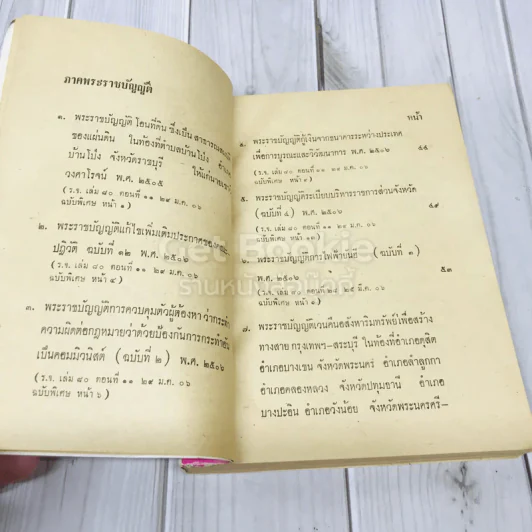 ภาคพระราชบัญญัติ
๑. พระราชบัญญัติ โอนที่ดิน ซึ่งเป็น สาธารณสมบัติ
ของแผ่นดิน ในท้องที่ตำบลบ้านโป่ง อำเภอ
บ้านโป่ง จังหวัดราชบุรี ให้แก่นาย
วงศาโรจน์ พ.ศ. ๒๕๐๕
(ร.จ. เล่ม ๘๐ ตอนที่ ๑๑ ๒๙ ม.ค. ๐๖
ฉบับพิเศษ หน้า ๑)
๒. พระราชบัญญัติแก้ไขเพิ่มเติมประกาศของคณะ
ปฏิวัติ ฉบับที่ ๑๒ พ.ศ. ๒๕๐๖
(ร.จ. เล่ม ๘๐ ตอนที่ ๑๑ ๒๙ ม.ค. ๐๖
ฉบับพิเศษ หน้า ๔)
๓. พระราชบัญญัติการควบคุมตัวผู้ต้องหา ว่ากระทำ
ความผิดต่อกฎหมายว่าด้วยป้องกันการกระทำอัน
เป็นคอมมิวนิสต์ (ฉบับที่ ๒) พ.ศ. ๒๕๐๖
(ร.จ. เล่ม ๘๐ ตอนที่ ๑๑ ๒๙ ม.ค. ๐๖
ฉบับพิเศษ หน้า ๖)
หน้า
พระราชบัญญัติกู้เงินจากธนาคารระหว่างประเทศ
เพื่อการบูรณะและวิวัฒนาการ พ.ศ. ๒๕๐๖ ๔๕
(ร.จ. เล่ม ๘๐ ตอนที่ ๑๑ ๒๙ ม.ค. ๐๖
ฉบับพิเศษ หน้า ๙)
๕. พระราชบัญญัติระเบียบบริหารราชการส่วนจังหวัด
(ฉบับที่ ๔) พ.ศ. ๒๕๐๖ ๔๙
(ร.จ. เล่ม ๘๐ ตอนที่ ๑๑ ๒๙ ม.ค. ๐๖
ฉบับพิเศษ หน้า
๖. พระราชบัญญัติการไฟฟ้ายันฮี (ฉบับที่ ๓)
พ.ศ. ๒๕๐๖ ๕๓
(ร.จ. เล่ม ๘๐ ตอนที่ ม.ค. ๐๖
ฉบับพิเศษ หน้า
๗. พระราชบัญญัติเวนคืนอสังหาริมทรัพย์เพื่อสร้าง
ทางสาย กรุงเทพฯ-สระบุรี ในท้องที่อำเภอดุสิต
อำเภอบางเขน จังหวัดพระนคร อำเภอลำลูกกา
อำเภอคลองหลวง จังหวัดปทุมธานี อำเภอ
บางปะอิน อำเภอวังน้อย จังหวัดพระนครศรี-
Get Bookie
ร้านหนังสือ